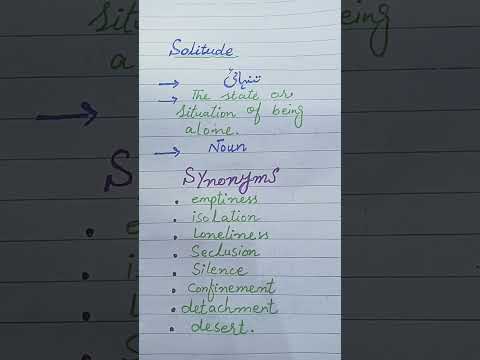 Solitude
→ تنہائی
→ The state or
situation of being
alone.
→ Noun
Synonyms
• emptiness
• isolation
• Loneliness
• Seclusion
• Silence
• Confinement
• detachment
• desert.